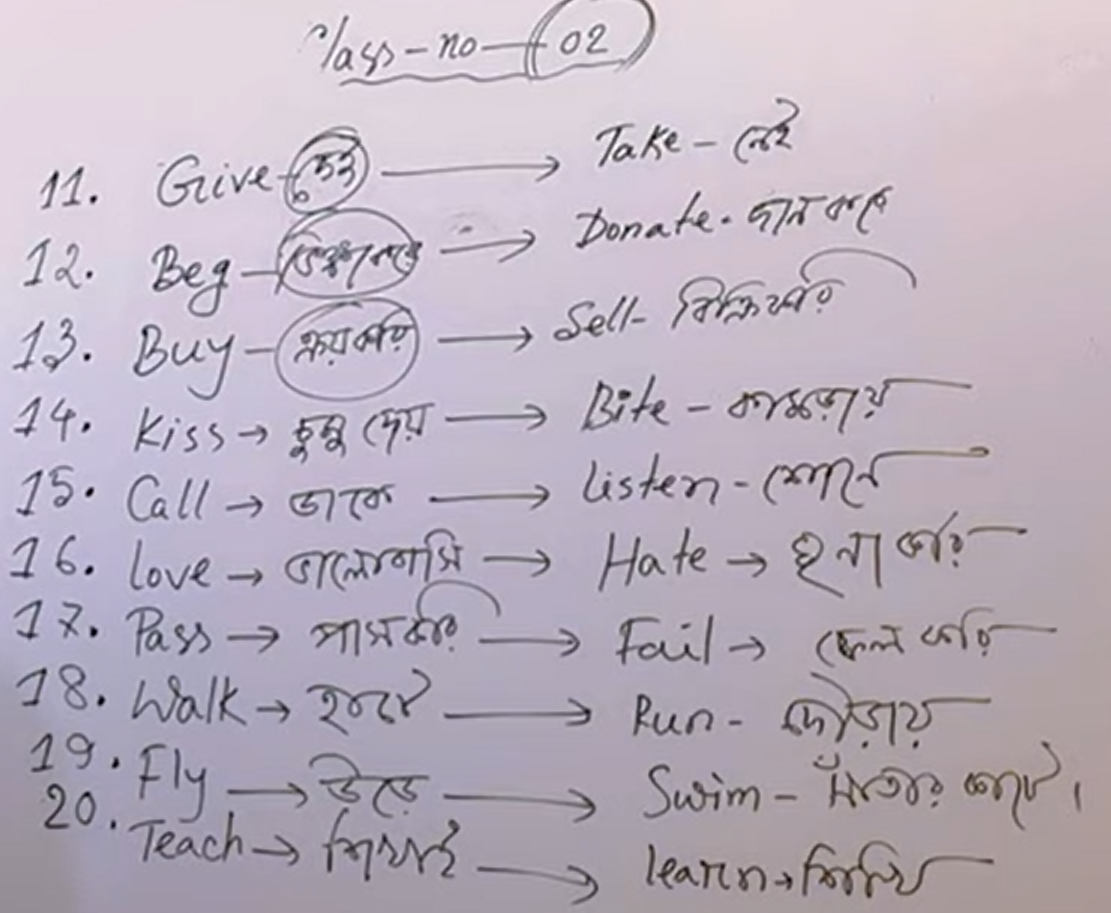 Class-no-02
11. Give-দেই → Take - নেই
12. Beg-ভিক্ষা করে → Donate. দান করে
13. Buy-ক্রয় করি → Sell- বিক্রি করি
14. Kiss → চুমু দেয় → Bite - কামড়ায়
15. Call → ডাকে → Listen - শোনে
16. Love → ভালোবাসি → Hate → ঘৃনা করি
17. Pass → পাস করি → Fail → ফেল করি
18. Walk → হাটে → Run - দৌড়ায়
19. Fly → উড়ে → Swim - সাঁতার কাটে।
20. Teach → শিখাই → learn → শিখি